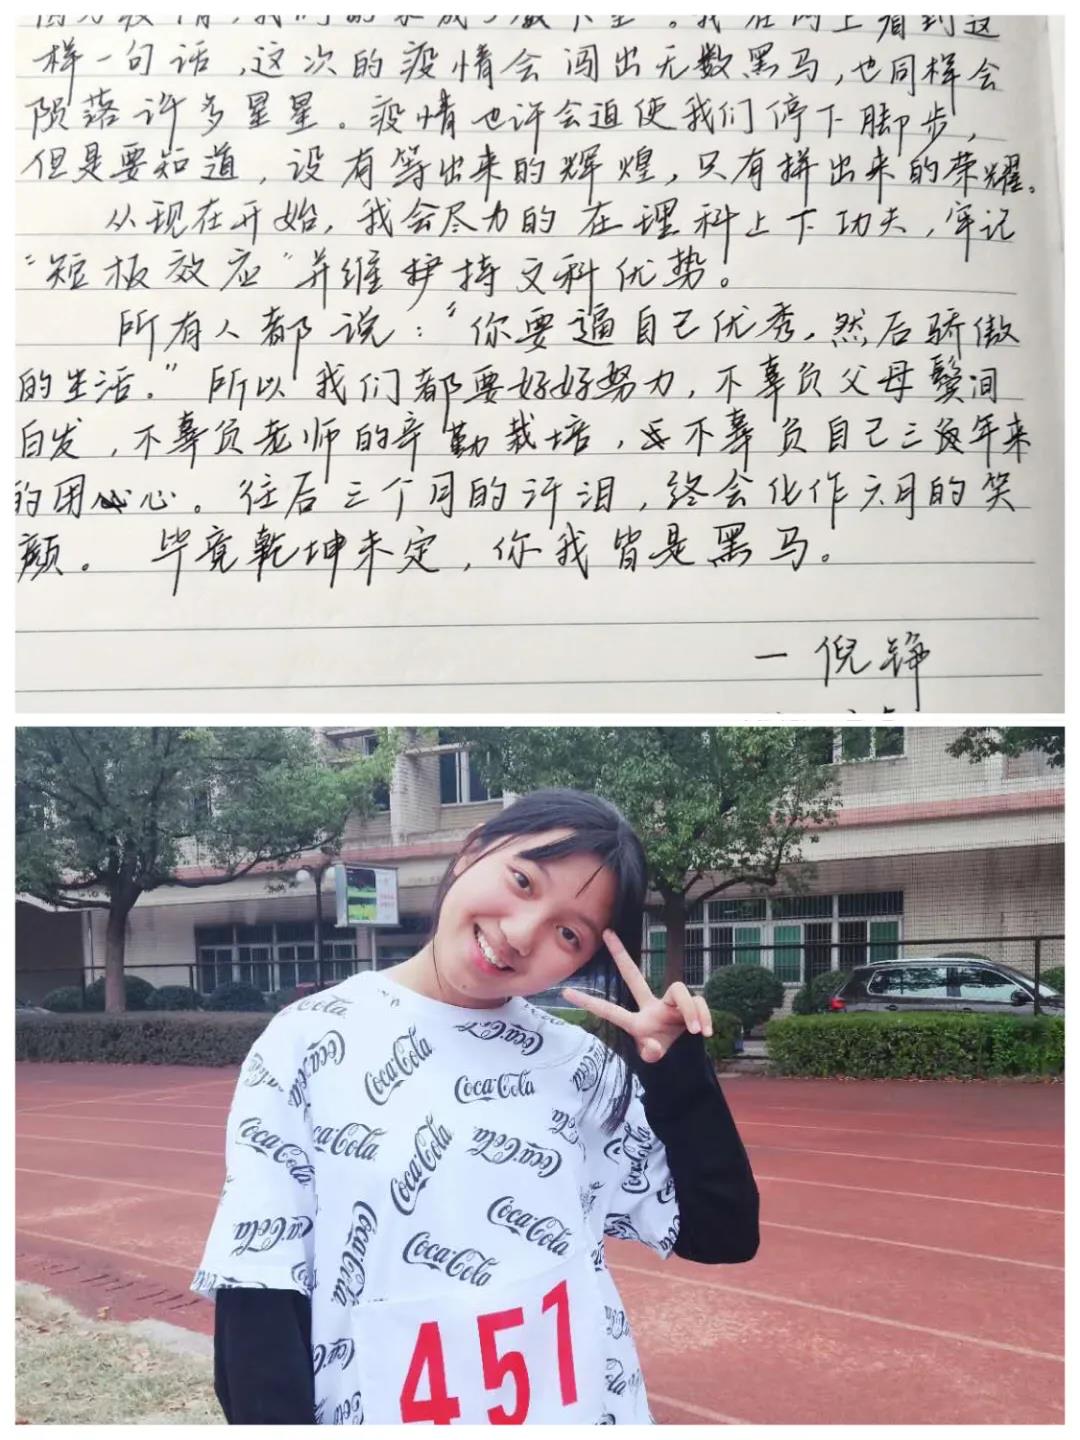 因为疫情，我们的
。我在网上看到这
样一句话，这次的疫情会闯出无数黑马，也同样会
陨落许多星星。疫情也许会迫使我们停下脚步，
但是要知道，没有等出来的辉煌，只有拼出来的荣耀。
从现在开始，我会尽力的在理科上下功夫，牢记
“短板效应”并维护持文科优势。
所有人都说：“你要逼自己优秀，然后骄傲
的生活。”所以我们都要好好努力，不辜负父母鬓间
白发，不辜负老师的辛勤栽培，不辜负自己三年来
的用心。往后三个月的汗泪，终会化作六月的笑
颜。毕竟乾坤未定，你我皆是黑马。
一倪铮
Coca-Cola
Coca-Cola
Coca-Cola
Coca-Cola
Coca-Cola
Coca-Cola
Coca-Cola
Coca-Cola
Coca-Cola
451